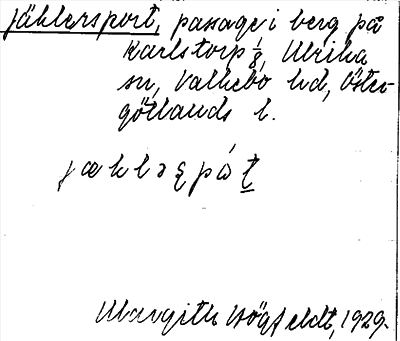 jäklersport, passage i berg på
Karlstorp 1/8, Ulrika
sn, Valkebo hd, Öster-
götlands l.
jæklɔʂpåt
Margith Högfeldt, 1929.